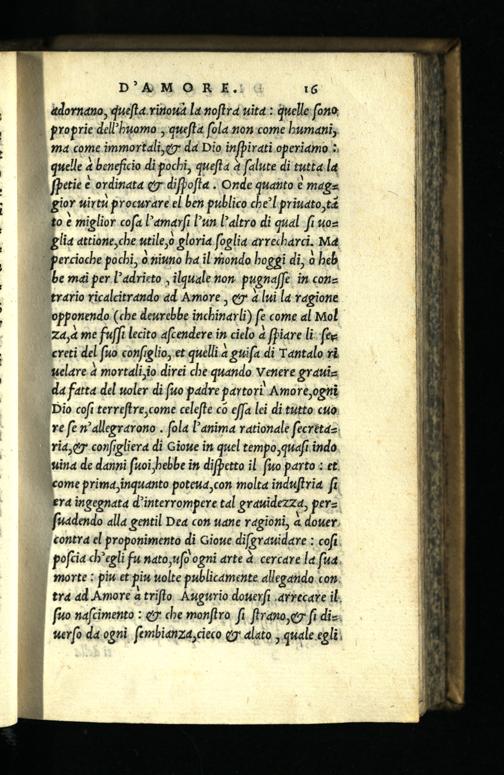 D'AMORE. 16
adornano, questa rinoua la nostra vita : quelle sono
proprie dell'huomo, questa sola non come humani,
ma come immortali,& da Dio inspirati operiamo :
quelle à beneficio di pochi, questa à salute di tutta la
spetie è ordinata & disposta. Onde quanto è mag=
gior virtù procurare el ben publico che'l priuato,tã
to è miglior cosa l'amarsi l'un l'altro di qual si vo=
glia attione,che utile,ò gloria soglia arrecharci. Ma
percioche pochi, ò niuno ha il mondo hoggi di, ò heb
be mai per l'adrieto, ilquale non pugnasse in con=
trario ricalcitrando ad Amore, & à lui la ragione
opponendo (che deurebbe inchinarli) se come al Mol
za,à me fussi lecito ascendere in cielo à spiare li se=
creti del suo consiglio, et quelli à guisa di Tantalo ri
uelare à mortali,io direi che quando Venere graui=
da fatta del voler di suo padre partorì Amore,ogni
Dio cosi terrestre,come celeste cõ essa lei di tutto cuo
re se n'allegrarono. sola l'anima rationale secreta=
ria,& consigliera di Gioue in quel tempo,quasi indo
uina de danni suoi,hebbe in dispetto il suo parto : et
come prima,inquanto poteua,con molta industria si
era ingegnata d'interrompere tal grauidezza, per=
suadendo alla gentil Dea con uane ragioni, à douer
contra el proponimento di Gioue disgrauidare : cosi
poscia ch'egli fu nato,usò ogni arte à cercare la sua
morte : piu et piu uolte publicamente allegando con
tra ad Amore à tristo Augurio douersi arrecare il
suo nascimento : & che monstro si strano,& si di=
uerso da ogni sembianza,cieco & alato, quale egli